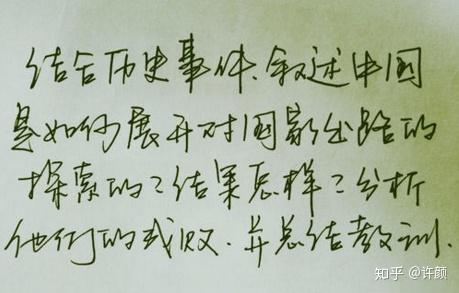 结合历史事件、叙述中国
是如何展开对国家出路的
探索的？结果怎样？分析
他们的成败.并总结教训.
知乎 @许颜